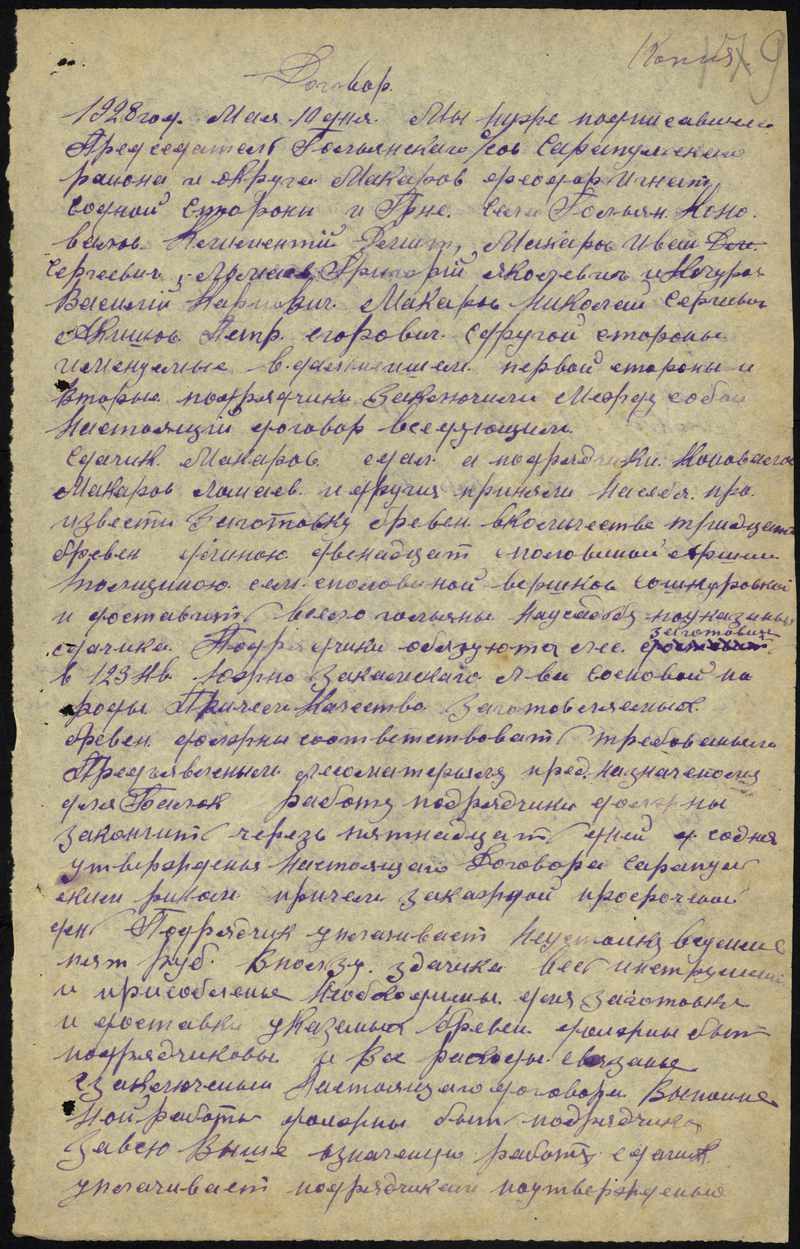 Копия. 9
Договор.
1928 год. Мая 10 дня. Мы ниже подписавшиеся
Председатель Гольянскаго с/сов Сарапульскаго
района и округа Макаров Феодор Игнат.
содной стороны и Грне. села Гольян. Коно-
валов Климентий Дмит, Макаров Иван
Сергеевич, Ломаев Григорий Яковлевич и Кочуров
Василий Карпович. Макаров Николай Сергеевич
Акишов Петр. Егорович. сдругой стороны
именуемые вдальнейшем первой стороны и
вторые подрядчики заключили между собой
настоящий договор вследующим.
Сдатчик Макаров сдал а подрядчики. Коновалов
Макаров Ломаев. и другия приняли насебя. про-
извести заготовку бревен вколичестве тридцать
бревен длиною двенадцат споловиной аршин
толщиною семи споловиной вершков сошкуровкой
и доставить всело гольяны поуказанью
сдачика. Подрядчики обязуются лес. заготовить
в 123 кв. закамскаго л-ва сосновой по
роды Причем качество заготовляемых
бревен должны соответствовать требованьям
Предъявленным лесоматерьялу предназначеному
для балок работу подрядчики должны
закончить черезь пятнадцать дней содня
утверждения настоящаго Договора Сарапуль
ским риком причем закаждой просроченой
ден Подрядчик уплачивает неустойку всумме
пять руб. впользу. здачика весь инструмент
и присобленье необходимы. для заготовки
и доставки указаных бревен должны быть
подрядчиковы и все расходы связаные
сзаключеньем настоящаго договора выполне
ной работы должны быть подрядчика
Завсю выше означеную работу сдачик
уплачивает подрядчикам поутвержденью